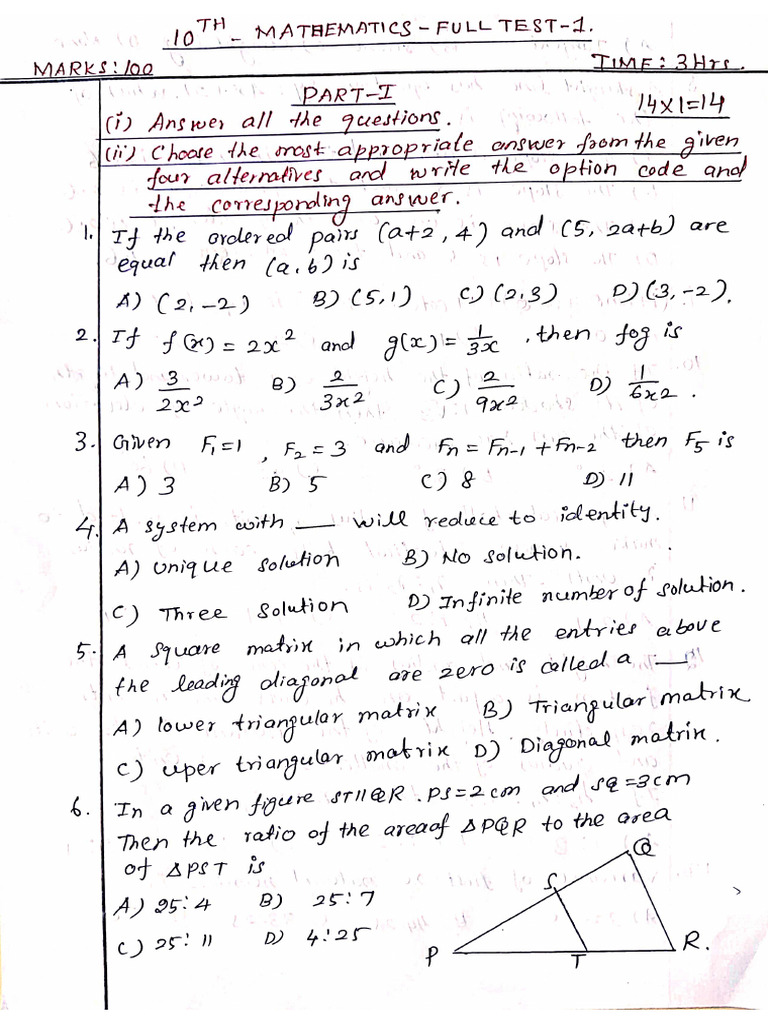 10TH - MATHEMATICS - FULL TEST-1.
MARKS: 100 TIME: 3Hrs.
PART-I
14X1=14
(i) Answer all the questions.
(ii) Choose the most appropriate answer from the given
four alternatives and write the option code and
the corresponding answer.
1. If the ordered pairs (a+2, 4) and (5, 2a+b) are
equal then (a,b) is
A) (2,-2) B) (5,1) C) (2,3) D) (3,-2).
2. If f(x) = 2x² and g(x) = 1/3x, then fog is
A) 3/2x² B) 2/3x² C) 2/9x² D) 1/6x2.
3. Given F₁=1, F₂=3 and Fn = Fn-1 + Fn-2 then F5 is
A) 3 B) 5 C) 8 D) 11
4. A system with ___ will reduce to identity.
A) Unique solution B) No solution.
C) Three solution D) Infinite number of solution.
5. A square matrix in which all the entries above
the leading diagonal are zero is called a ___
A) lower triangular matrix B) Triangular matrix
C) uper triangular matrix D) Diagonal matrix.
6. In a given figure ST||QR. PS=2cm and SQ=3cm
Then the ratio of the areaof △PQR to the area
of △PST is
A) 25:4 B) 25:7
C) 25:11 D) 4:25
Q
S
P
T
R.